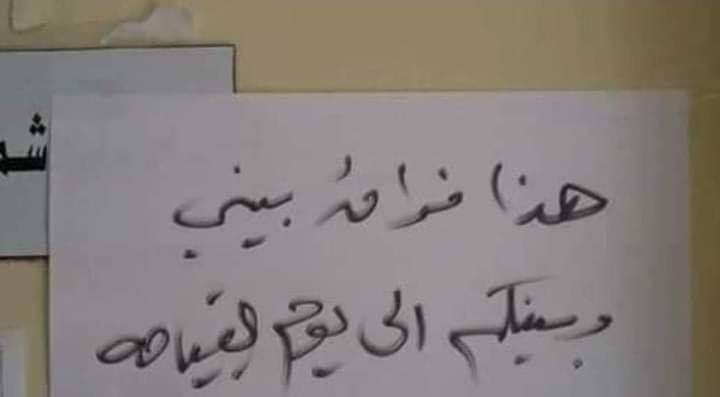 هذا فراقُ بيني
وبينكم الى يوم القيامه